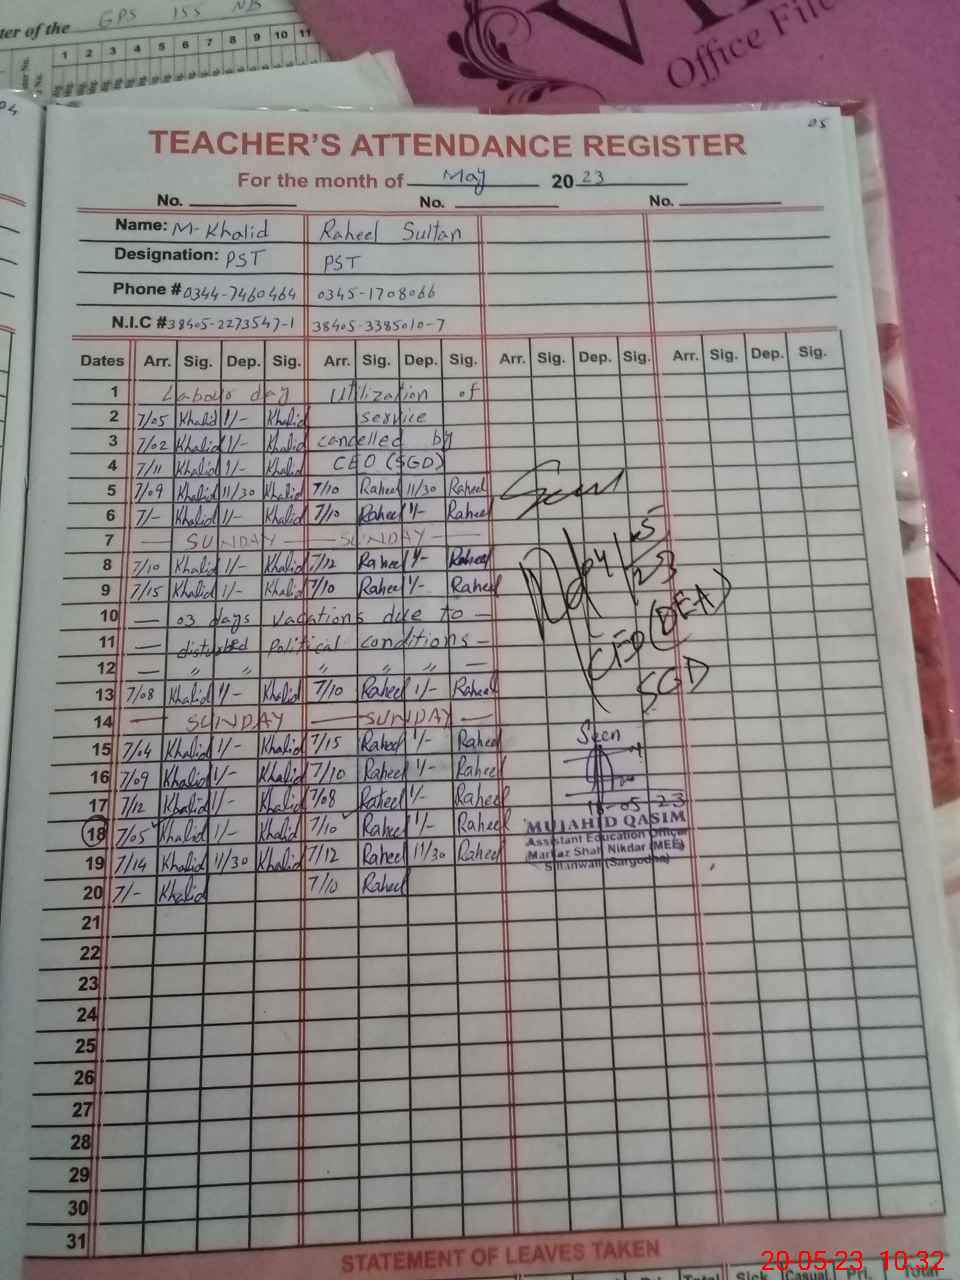 ter of the GPS 155 NB
1 2 3 4 5 6 7 8 9 10 11
Office File
04
05
TEACHER'S ATTENDANCE REGISTER
For the month of May 2023
No. No. No.
Name: M-Khalid Raheel Sultan
Designation: PST PST
Phone # 0344-7460464 0345-1708066
N.I.C # 38405-2273547-1 38405-3385010-7
Dates Arr. Sig. Dep. Sig. Arr. Sig. Dep. Sig. Arr. Sig. Dep. Sig. Arr. Sig. Dep. Sig.
1 Labour day Utilization of
2 7/05 Khalid 1/- Khalid service
3 7/02 Khalid 1/- Khalid cancelled by
4 7/11 Khalid 1/- Khalid CEO (SGD)
5 7/09 Khalid 11/30 Khalid 7/10 Raheel 11/30 Raheel
6 7/- Khalid 1/- Khalid 7/10 Raheel 1/- Raheel
7 — SUNDAY — SUNDAY —
8 7/10 Khalid 1/- Khalid 7/12 Raheel 1/- Raheel
9 7/15 Khalid 1/- Khalid 7/10 Raheel 1/- Raheel
10 — 03 days vacations due to —
11 — disturbed Political conditions —
12 — " " " " " —
13 7/08 Khalid 1/- Khalid 7/10 Raheel 1/- Raheel
14 — SUNDAY — SUNDAY —
15 7/04 Khalid 1/- Khalid 7/15 Raheel 1/- Raheel
16 7/09 Khalid 1/- Khalid 7/10 Raheel 1/- Raheel
17 7/12 Khalid 1/- Khalid 7/08 Raheel 1/- Raheel
18 7/05 Khalid 1/- Khalid 7/10 Raheel 1/- Raheel
19 7/14 Khalid 11/30 Khalid 7/12 Raheel 11/30 Raheel
20 7/- Khalid 7/10 Raheel
21
22
23
24
25
26
27
28
29
30
31
Seen
CEO (DEA)
SGD
Seen
18-05-23
MUJAHID QASIM
Assistant Education Officer
Markaz Shah Nikdar (MEE)
Sillanwali (Sargodha)
STATEMENT OF LEAVES TAKEN
Total Sick Casual Pri. Total
20-05-23 10:32